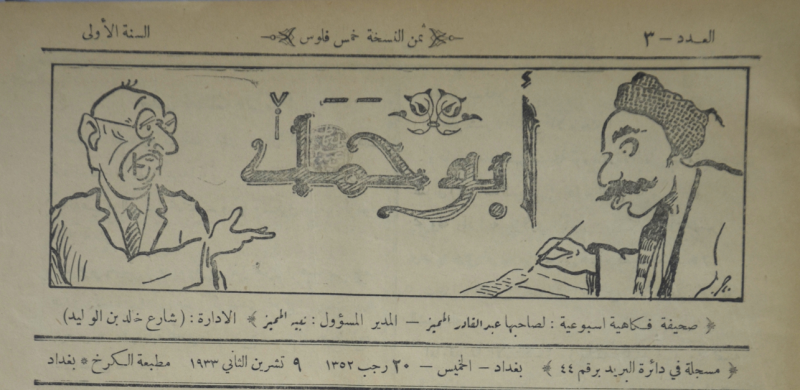 العدد – ٣ ثمن النسخة خمس فلوس السنة الأولى
أبو حمد
صحيفة فكاهية اسبوعية : لصاحبها عبدالقادر المميز – المدير المسؤول : نبيه المميز ﴾ الادارة : (شارع خالد بن الوليد)
﴿ مسجلة في دائرة البريد برقم ٤٤ ﴾ بغداد – الخميس – ٢٠ رجب ١٣٥٢ ٩ تشرين الثاني ١٩٣٣ مطبعة الكرخ * بغداد